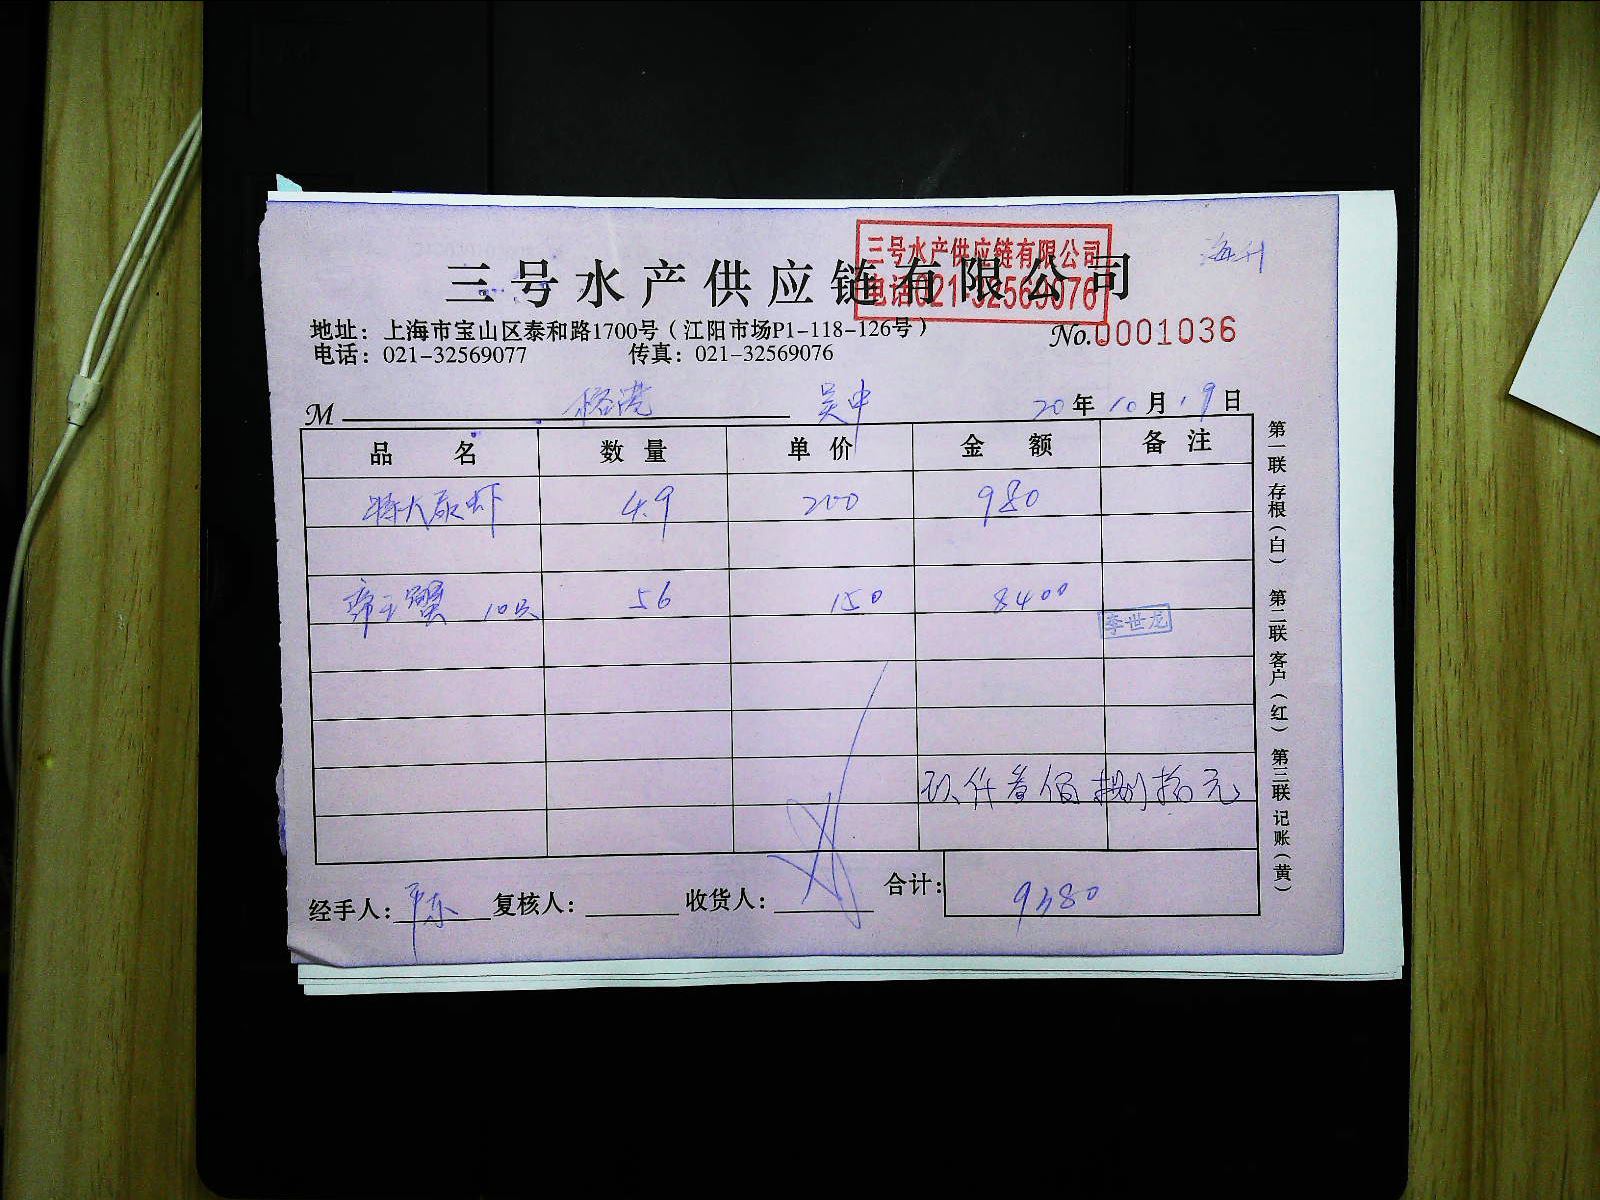 海升
三号水产供应链有限公司
三号水产供应链有限公司
电话021-32569076
地址：上海市宝山区泰和路1700号（江阳市场P1-118-126号）
No.0001036
电话：021-32569077 传真：021-32569076
M 吴中 20年10月19日
品名 数量 单价 金额 备注
特大 虾 4.9 200 980
帝王蟹 10只 56 150 8400
李世龙
玖仟叁佰捌拾元
经手人： 复核人： 收货人： 合计： 9380
第一联 存根（白） 第二联 客户（红） 第三联 记账（黄）